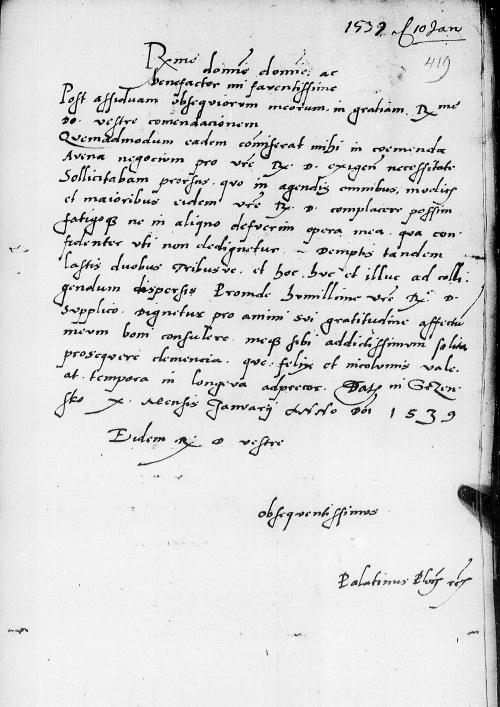 1539 10 Jan
419
Rme domine domine ac
benefactor mi faventissime
Post assiduam obsequiorum meorum in gratiam Rme
Do vestre comendacionem
Quemadmodum eadem comiserat mihi in coemenda
Avena negocium pro vre Rx D exigen necessitate
Sollicitabam prorsus quo in agendis omnibus modicis
et maioribus eidem vre Rx D complacere possim
fatigoqz ne in aliquo defuerim opera mea qua con
fidenter uti non dedignetur Demptis tandem
lastis duobus Tribusve et hoc huc et illuc ad colli
gendum dispersis Proinde humilline vre Rx D
Supplico Dignetur pro animi sui gratitudine affectu
meum boni consulere meqz sibi addictissimum solita
prosequere clemencia que felix et incolumis vale
at tempora in longeva adprecor Dat in Gezen
sko X Mensis Januarij Anno Do 1539
Eidem Rx D vestre
obsequentissimus
Palatinus